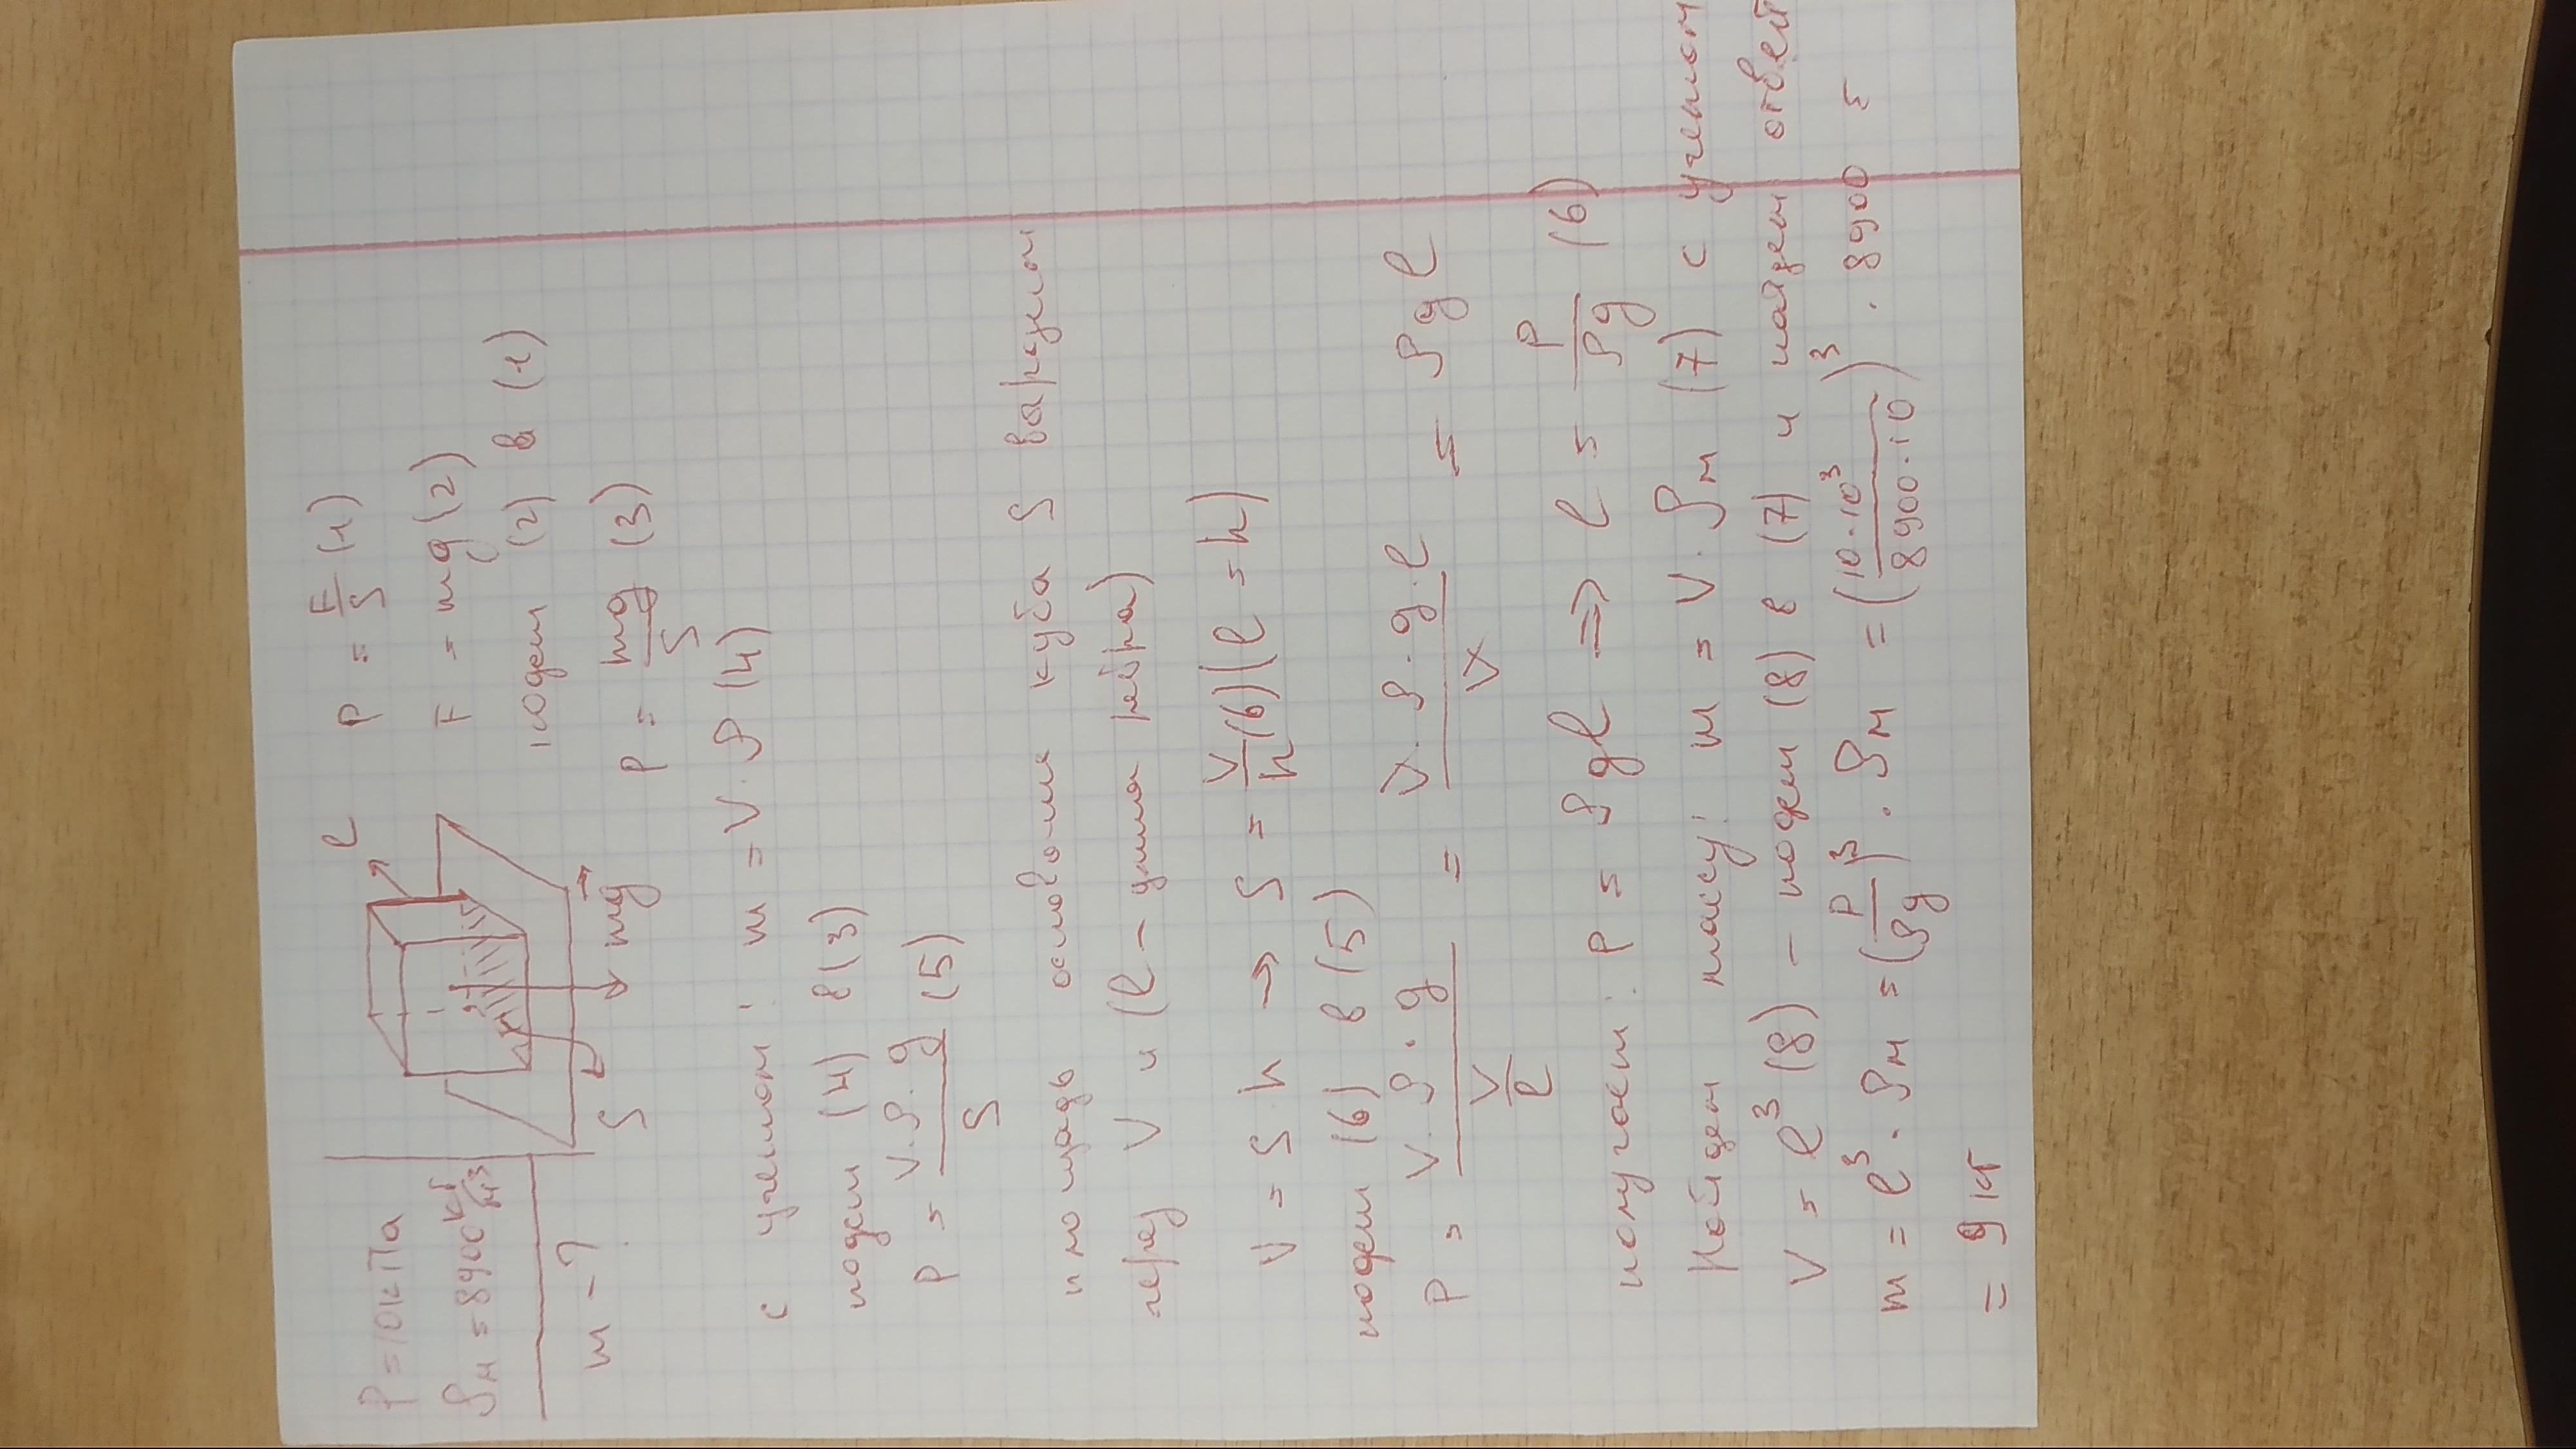 P = 10 кПа
ρм = 8900 кг/м³
m - ?
l
S
mg
P = F/S (1)
F = mg (2)
подем (2) в (1)
P = mg/S (3)
с учетом : m = V · ρ (4)
подем (4) в (3)
P = V·ρ·g/S (5)
площадь основание куба S варазем
через V и (l - длина ребра)
V = S · h → S = V/h (6) (l = h)
подем (6) в (5)
P = V·ρ·g/(V/l) = V·ρ·g·l/V = ρgl
получаем : P = ρgl => l = P/ρg (6)
Найдем массу: m = V · ρм (7) с учетом
V = l³ (8) - подем (8) в (7) и найдем ответ
m = l³ · ρм = (P/ρg)³ · ρм = (10·10³/8900·10)³ · 8900 =
= 9 кг